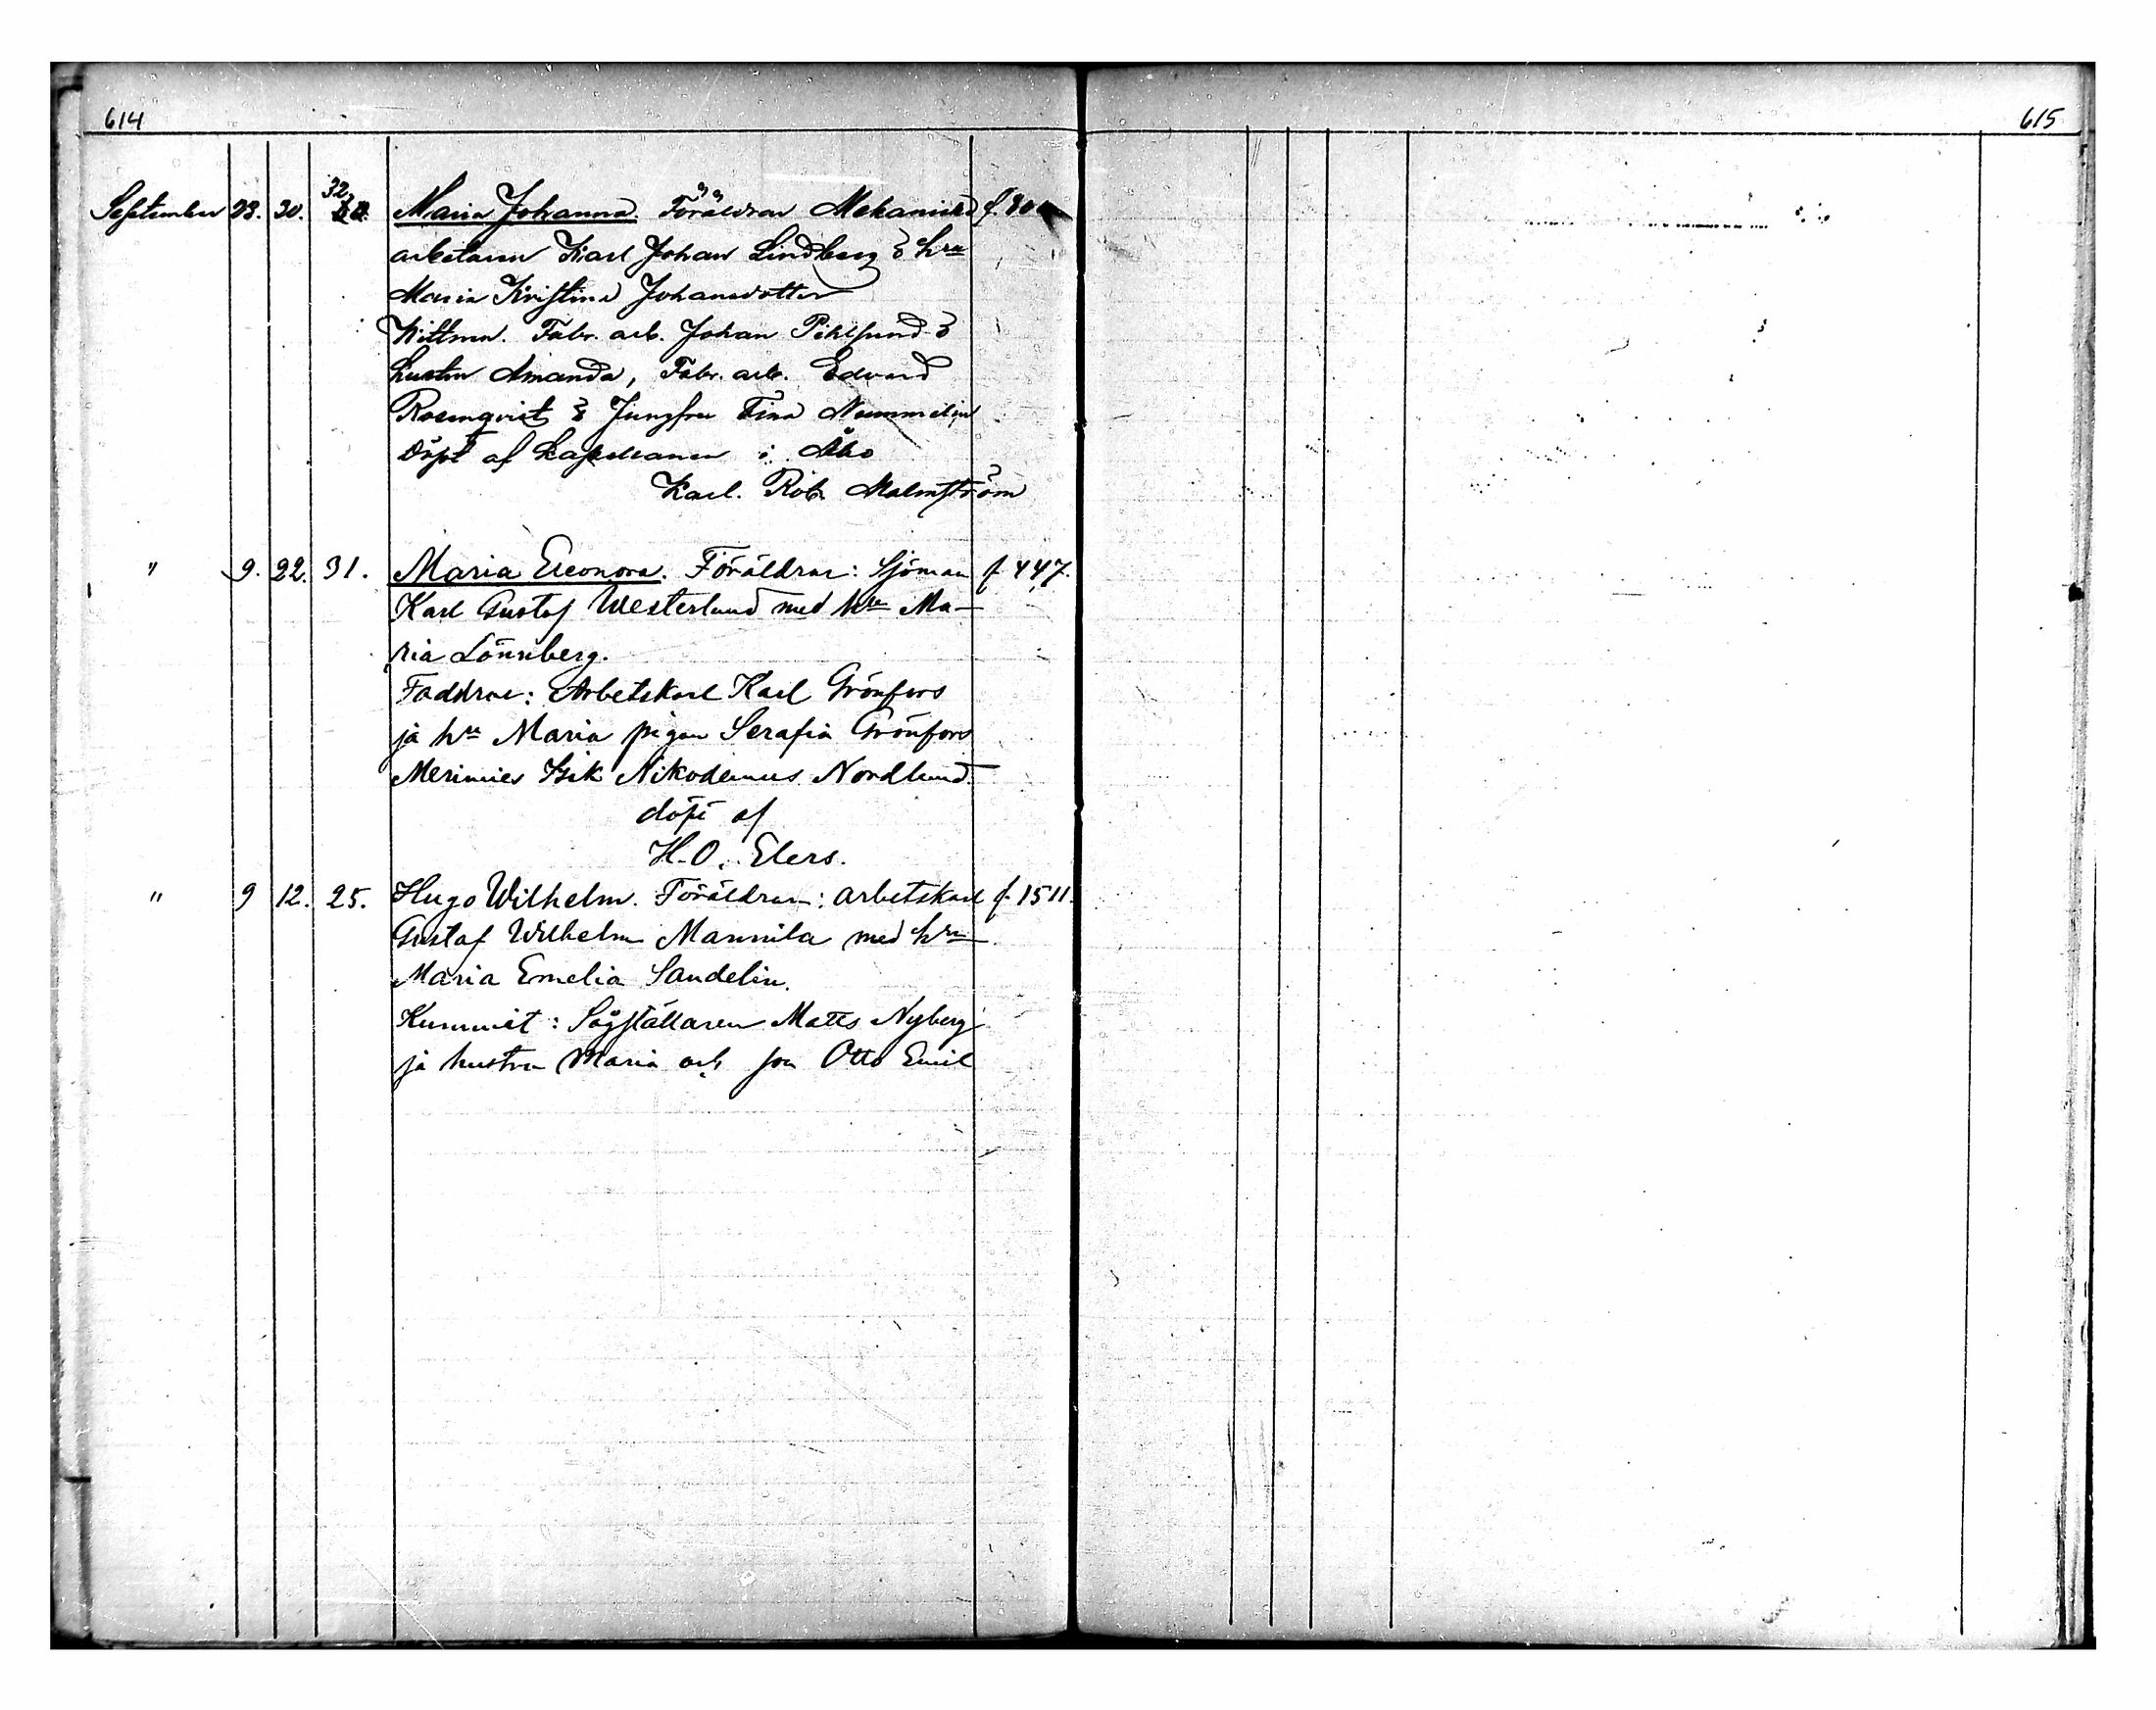 614
615
September 23. 30. 32. Maria Johanna. Föräldrar Mekaniska f.
arbetaren Karl Johan Lindberg & hru
Maria Kristina Johansdotter
Wittnen. Fabr. arb. Johan Pihlsund &
hustru Amanda, Fabr. arb. Edvard
Rosenqvist & Jungfru Fina Nummelin
Döpt af Kapellanen i Åbo
Karl. Rob. Malmström
" 9. 22. 31. Maria Eleonora. Föräldrar: Sjöman f. 447.
Karl Gustaf Westerlund med hru Ma-
ria Lönnberg.
Faddrar: Arbetskarl Karl Grönfors
ja hru Maria pigan Serafia Grönfors
Merimies Isik Nikodemus Nordlund.
döpt af
H. O. Elers.
" 9 12. 25. Hugo Wilhelm. Föräldrar: arbetskarl f. 1511.
Gustaf Wilhelm Mannila med hru
Maria Emelia Sandelin.
Kummit: Sågställaren Matts Nyberg
ja hustru Maria och son Otto Emil